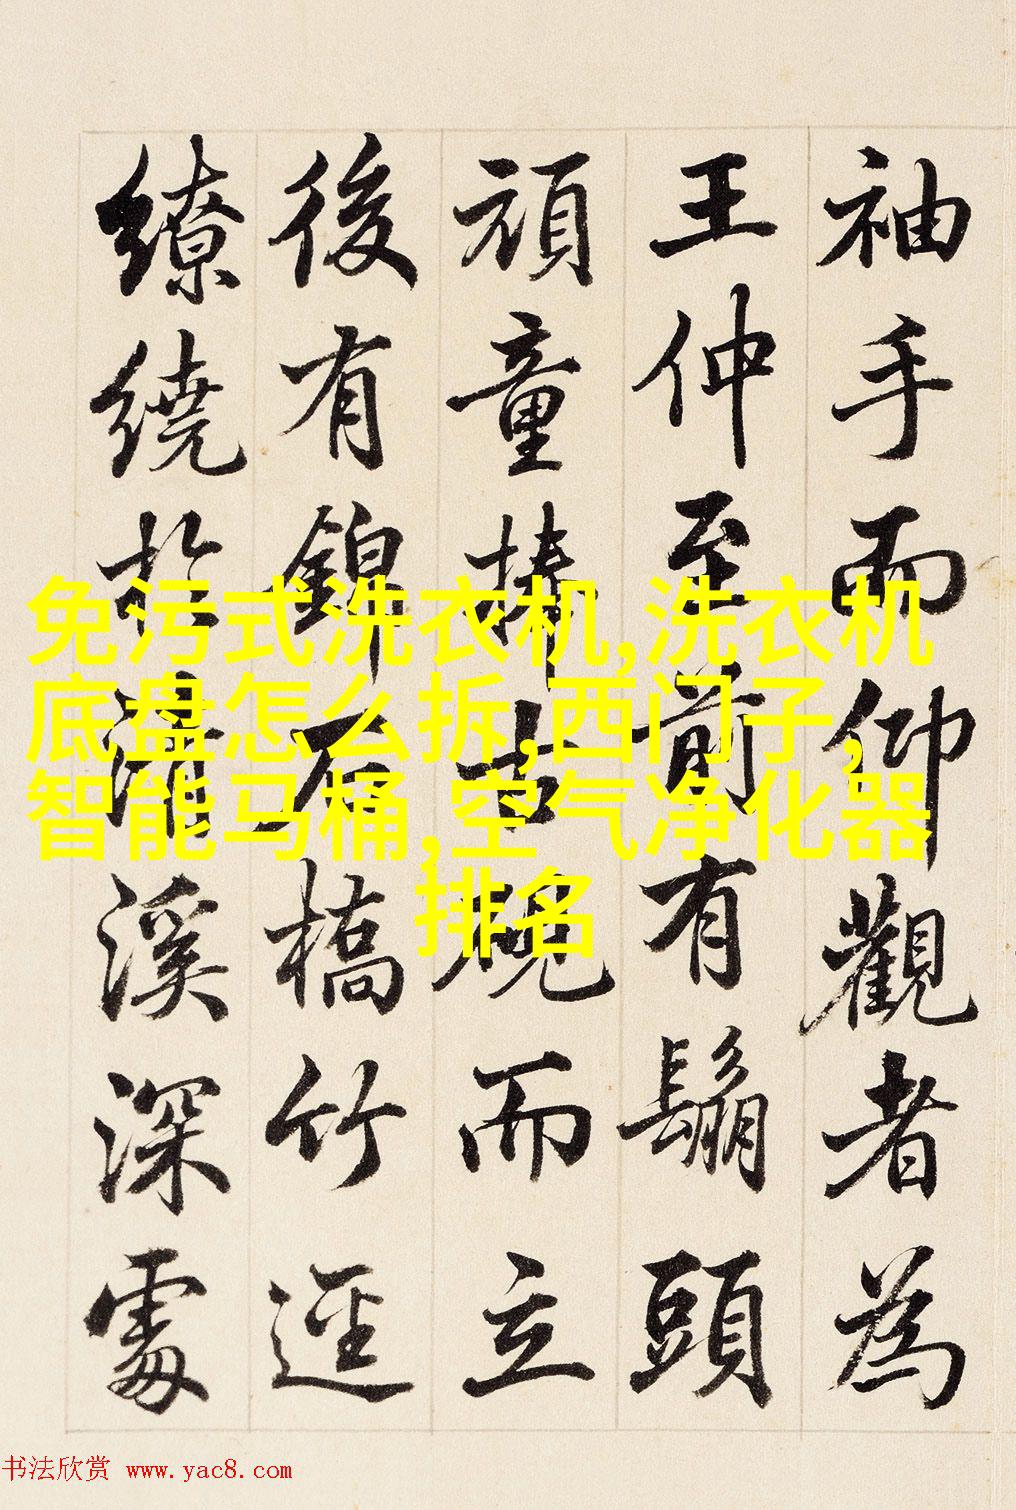 袖手而仰觀者為
王仲至前有鬅頭
頑童捧古硯而立
後有錦石橋竹逕
繚繞於清溪深處
免污式洗衣机,洗衣机
底盘怎么拆,西门子,
智能马桶,空气净化器
排名
书法欣赏 www.yac8.com